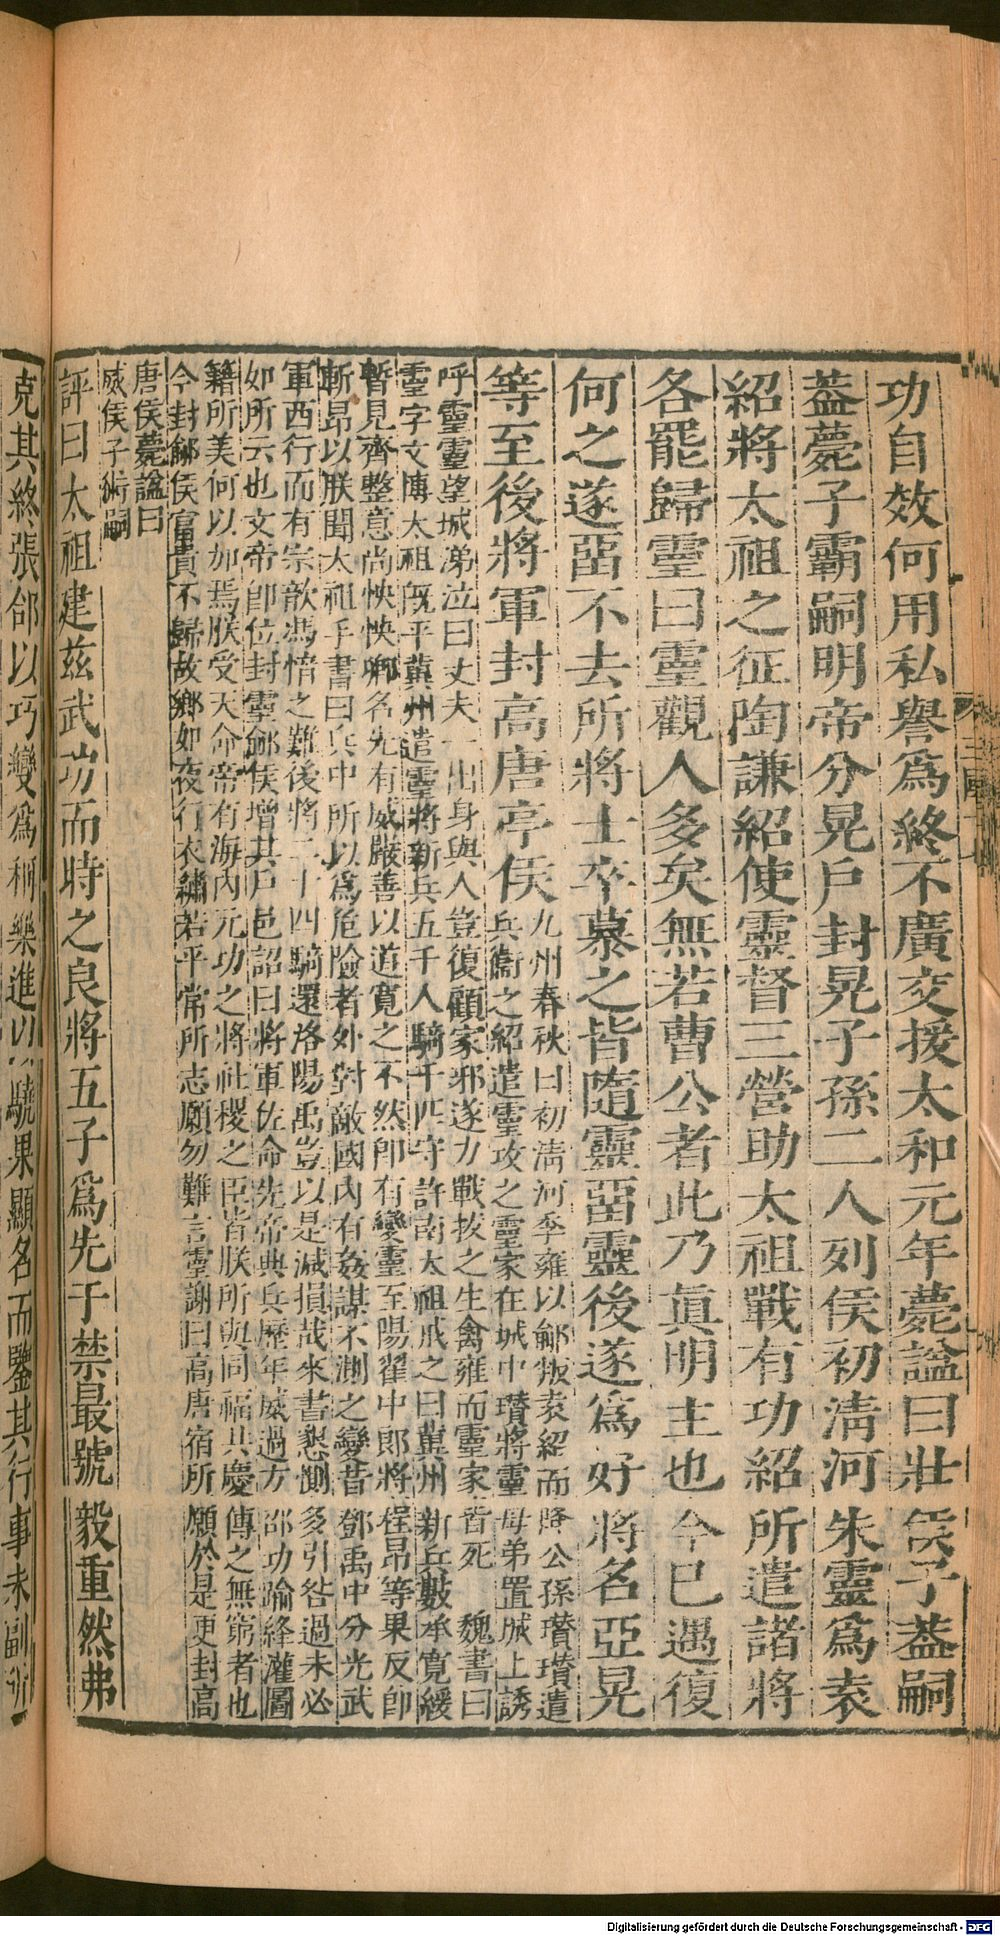 功自效何用私譽爲終不廣交援太和元年薨諡曰壯侯子葢嗣
葢薨子霸嗣明帝分晃戶封晃子孫二人列侯初清河朱靈爲袁
紹將太祖之征陶謙紹使靈督三營助太祖戰有功紹所遣諸將
各罷歸靈曰靈觀人多矣無若曹公者此乃眞明主也今已遇復
何之遂畱不去所將士卒慕之皆隨靈畱靈後遂爲好將名亞晃
等至後將軍封高唐亭侯
九州春秋曰初清河季雍以鄃叛袁紹而降公孫瓚瓚遣
兵衞之紹遣靈攻之靈家在城中瓚將靈母弟置城上誘
呼靈靈望城涕泣曰丈夫一出身與人豈復顧家邪遂力戰拔之生禽雍而靈家皆死 魏書曰
靈字文博太祖旣平冀州遣靈將新兵五千人騎千匹守許南太祖戒之曰冀州新兵數承寬緩
暫見齊整意尚怏怏卿名先有威嚴善以道寬之不然卽有變靈至陽翟中郎將程昂等果反卽
斬昂以狀聞太祖手書曰兵中所以爲危險者外對敵國內有姦謀不測之變昔鄧禹中分光武
軍西行而有宗歆馮愔之難後將二十四騎還洛陽禹豈以是減損哉來書懇惻多引咎過未必
如所云也文帝卽位封靈鄃侯增其戶邑詔曰將軍佐命先帝典兵歷年威過方邵功踰絳灌圖
籍所美何以加焉朕受天命帝有海內元功之將社稷之臣皆朕所與同福共慶傳之無窮者也
今封鄃侯富貴不歸故鄉如夜行衣繡若平常所志願勿難言靈謝曰高唐宿所願於是更封高
唐侯薨諡曰
威侯子術嗣
評曰太祖建茲武功而時之良將五子爲先于禁最號毅重然弗
克其終張郃以巧變爲稱樂進以驍果顯名而鑒其行事未副所
Digitalisierung gefördert durch die Deutsche Forschungsgemeinschaft - DFG